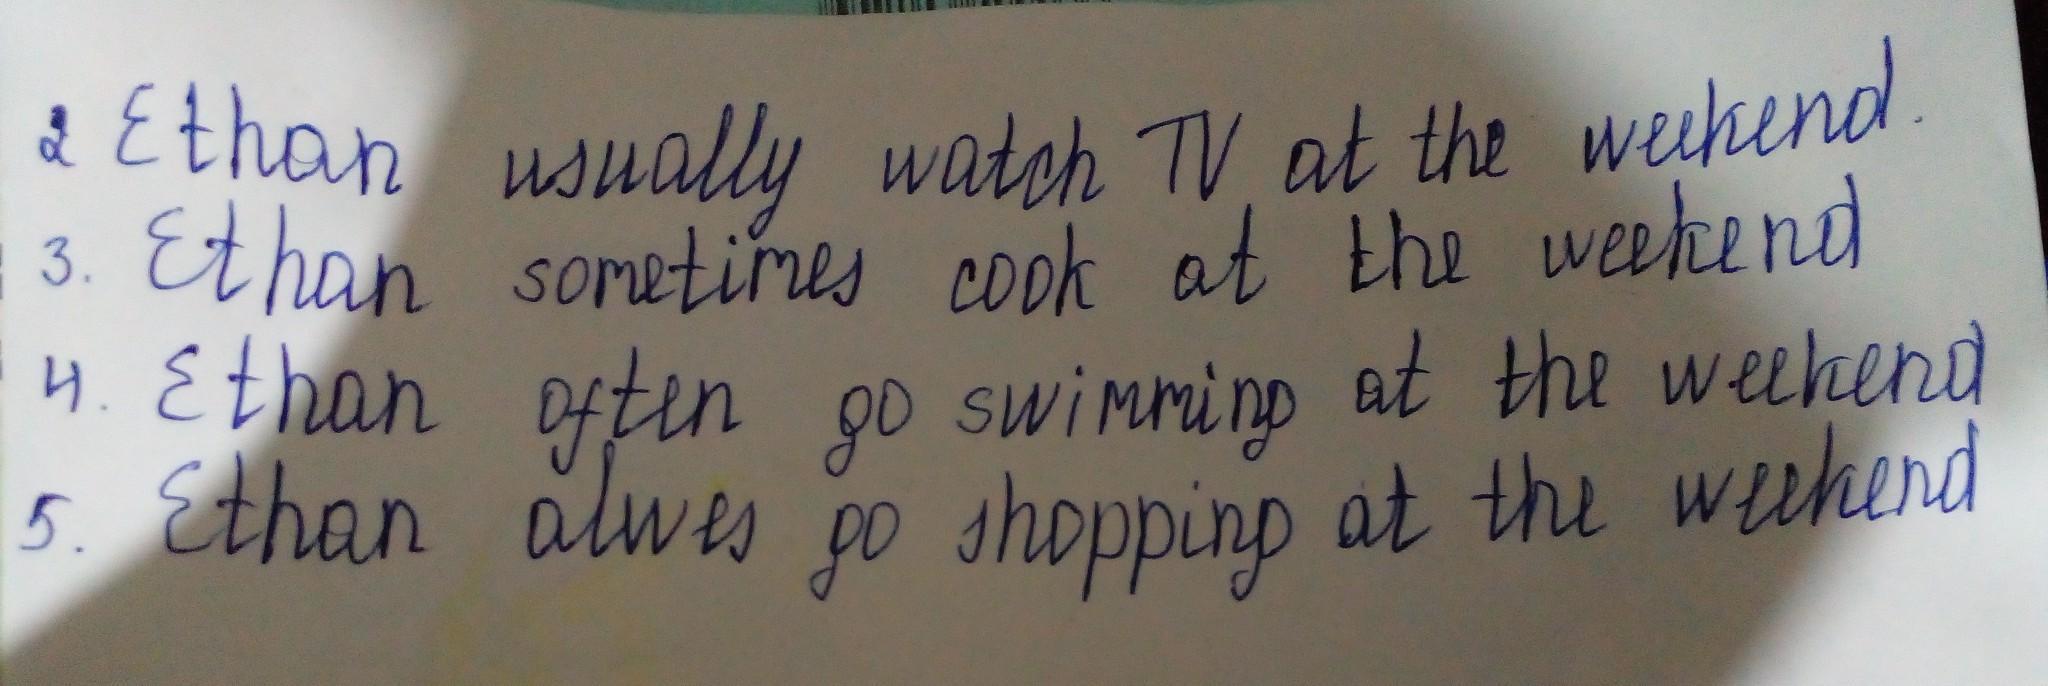 2 Ethan usually watch TV at the weekend.
3. Ethan sometimes cook at the weekend
4. Ethan often go swimming at the weekend
5. Ethan alwes go shopping at the weekend